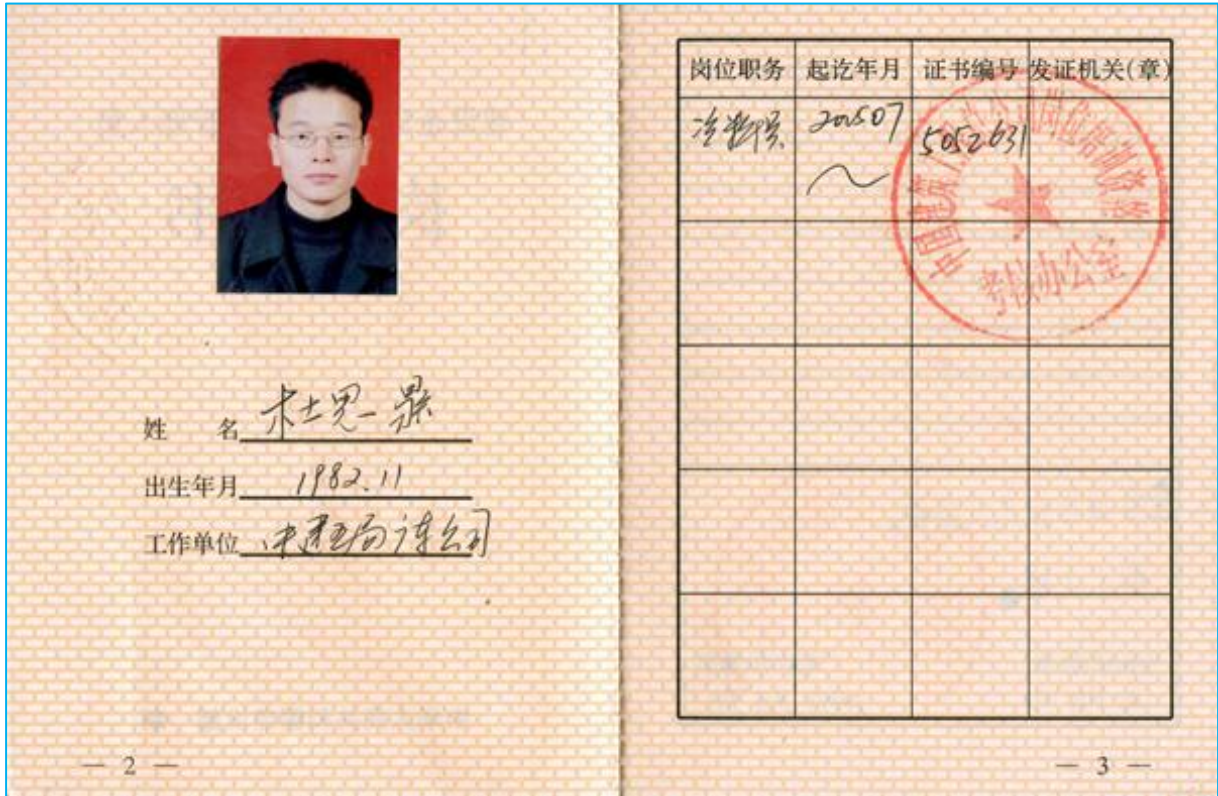 姓 名 杜思
出生年月 1982.11
工作单位 中建五局 公司
— 2 —
岗位职务 起讫年月 证书编号 发证机关(章)
200507 5052631
～
中国建筑工程总公司岗位培训资格
考核办公室
— 3 —